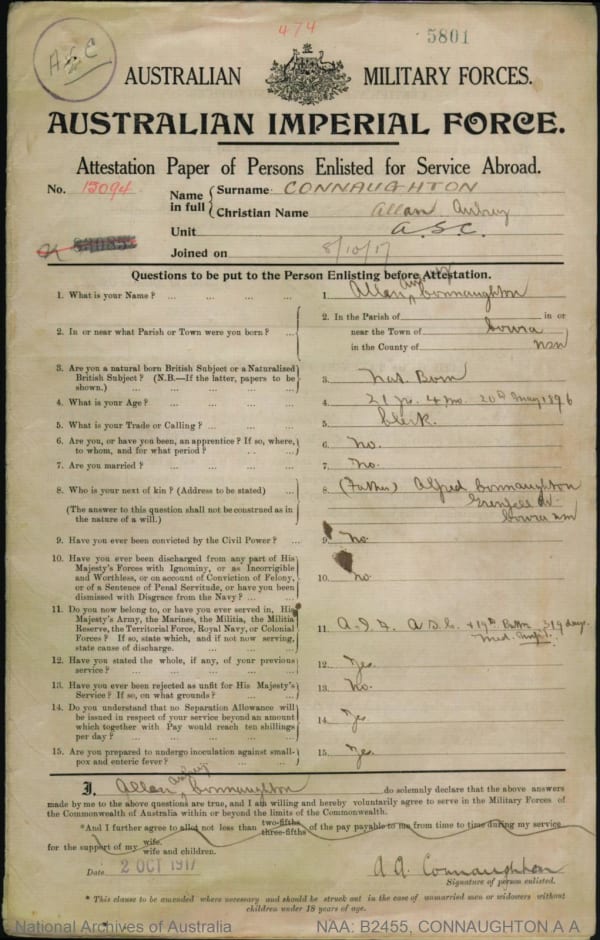 474
5801
A S C
AUSTRALIAN MILITARY FORCES.
AUSTRALIAN IMPERIAL FORCE.
Attestation Paper of Persons Enlisted for Service Abroad.
No. 13094 Name in full Surname CONNAUGHTON
Christian Name Allan Aubrey
Unit A.S.C.
Joined on 8/10/17
Questions to be put to the Person Enlisting before Attestation.
1. What is your Name? ... ... ... ... 1. Allan Aubrey Connaughton
2. In or near what Parish or Town were you born? ... 2. In the Parish of in or
near the Town of Cowra
in the County of NSW
3. Are you a natural born British Subject or a Naturalized
British Subject? (N.B.—If the latter, papers to be
shown.) ... ... ... ... 3. Nat. Born
4. What is your Age? ... ... ... ... 4. 21 yrs. 4 mo. 20th May 1896
5. What is your Trade or Calling? ... ... ... 5. Clerk.
6. Are you, or have you been, an apprentice? If so, where,
to whom, and for what period? ... ... 6. No.
7. Are you married? ... ... ... ... 7. No.
8. Who is your next of kin? (Address to be stated) ... 8. (Father) Alfred Connaughton
Grenfell Rd
(The answer to this question shall not be construed as in
the nature of a will.) Cowra NSW
9. Have you ever been convicted by the Civil Power? ... 9. No
10. Have you ever been discharged from any part of His
Majesty's Forces with Ignominy, or as Incorrigible
and Worthless, or on account of Conviction of Felony,
or of a Sentence of Penal Servitude, or have you been
dismissed with Disgrace from the Navy? ... ... 10. No
11. Do you now belong to, or have you ever served in, His
Majesty's Army, the Marines, the Militia, the Militia
Reserve, the Territorial Force, Royal Navy, or Colonial
Forces? If so, state which, and if not now serving,
state cause of discharge. ... ... 11. A.I.F. A.S.C. & 19th Battn 319 days.
Med. Unfit.
12. Have you stated the whole, if any, of your previous
service? ... ... ... ... 12. Yes
13. Have you ever been rejected as unfit for His Majesty's
Service? If so, on what grounds? ... ... 13. No.
14. Do you understand that no Separation Allowance will
be issued in respect of your service beyond an amount
which together with Pay would reach ten shillings
per day? ... ... ... ... 14. Yes
15. Are you prepared to undergo inoculation against small-
pox and enteric fever? ... ... ... 15. Yes.
I, Allan Aubrey Connaughton do solemnly declare that the above answers
made by me to the above questions are true, and I am willing and hereby voluntarily agree to serve in the Military Forces of
the Commonwealth of Australia within or beyond the limits of the Commonwealth.
*And I further agree to allot not less than two-fifths three-fifths of the pay payable to me from time to time during my service
for the support of my wife. wife and children.
Date 2 OCT 1917 A A Connaughton
Signature of person enlisted.
* This clause to be amended where necessary and should be struck out in the case of unmarried men or widowers without
children under 18 years of age.
National Archives of Australia NAA: B2455, CONNAUGHTON A A